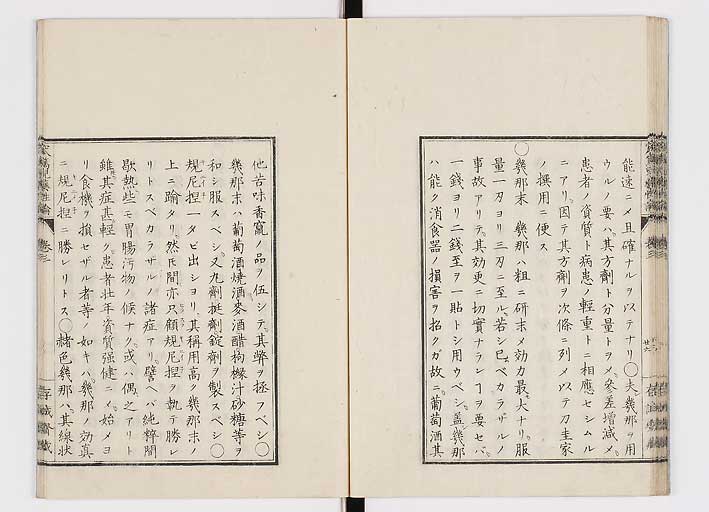 能速ニメ且確ナルヲ以テナリ〇夫幾那ヲ用
ウルノ要ハ其方劑ト分量トヲメ參差増減メ
患者ノ資質ト病患ノ輕重トニ相應セシムル
ニアリ因テ其方劑ヲ次條ニ列メ以テ刀圭家
ノ撰用ニ便ス
〇幾那末　幾那ハ粗ニ研末メ効力最大ナリ服
量一刃ヨリ三刃ニ至ル若シ已ベカラザルノ
事故アリテ其効更ニ切實ナランヿヲ要セバ
一錢ヨリ二錢至ヲ一貼トシ用ウベシ蓋幾那
ハ能ク消食器ノ損害ヲ招クガ故ニ葡萄酒其
他苦味香竄ノ品ヲ伍シテ其弊ヲ拯フベシ〇
幾那末ハ葡萄酒燒酒麥酒醋枸櫞汁砂糖等ヲ
和シ服スベシ又丸劑挺劑錠劑ヲ製スベシ〇
規尼捏一タビ出シヨリ其稱用高ク幾那末ノ
上ニ踰タリ然氏間亦只顧規尼捏ヲ執テ勝レ
リトスベカラザルノ諸症アリ譬ヘバ純粹間
歇熱些モ胃腸汚物ノ候ナク或ハ偶之アリト
雖其症甚輕ク患者壮年資質强健ニメ始メヨ
リ食機ヲ損セザル者等ノ如キハ幾那ノ効真
ニ規尼捏ニ勝レリトス〇赭色幾那ハ其線状
卷三